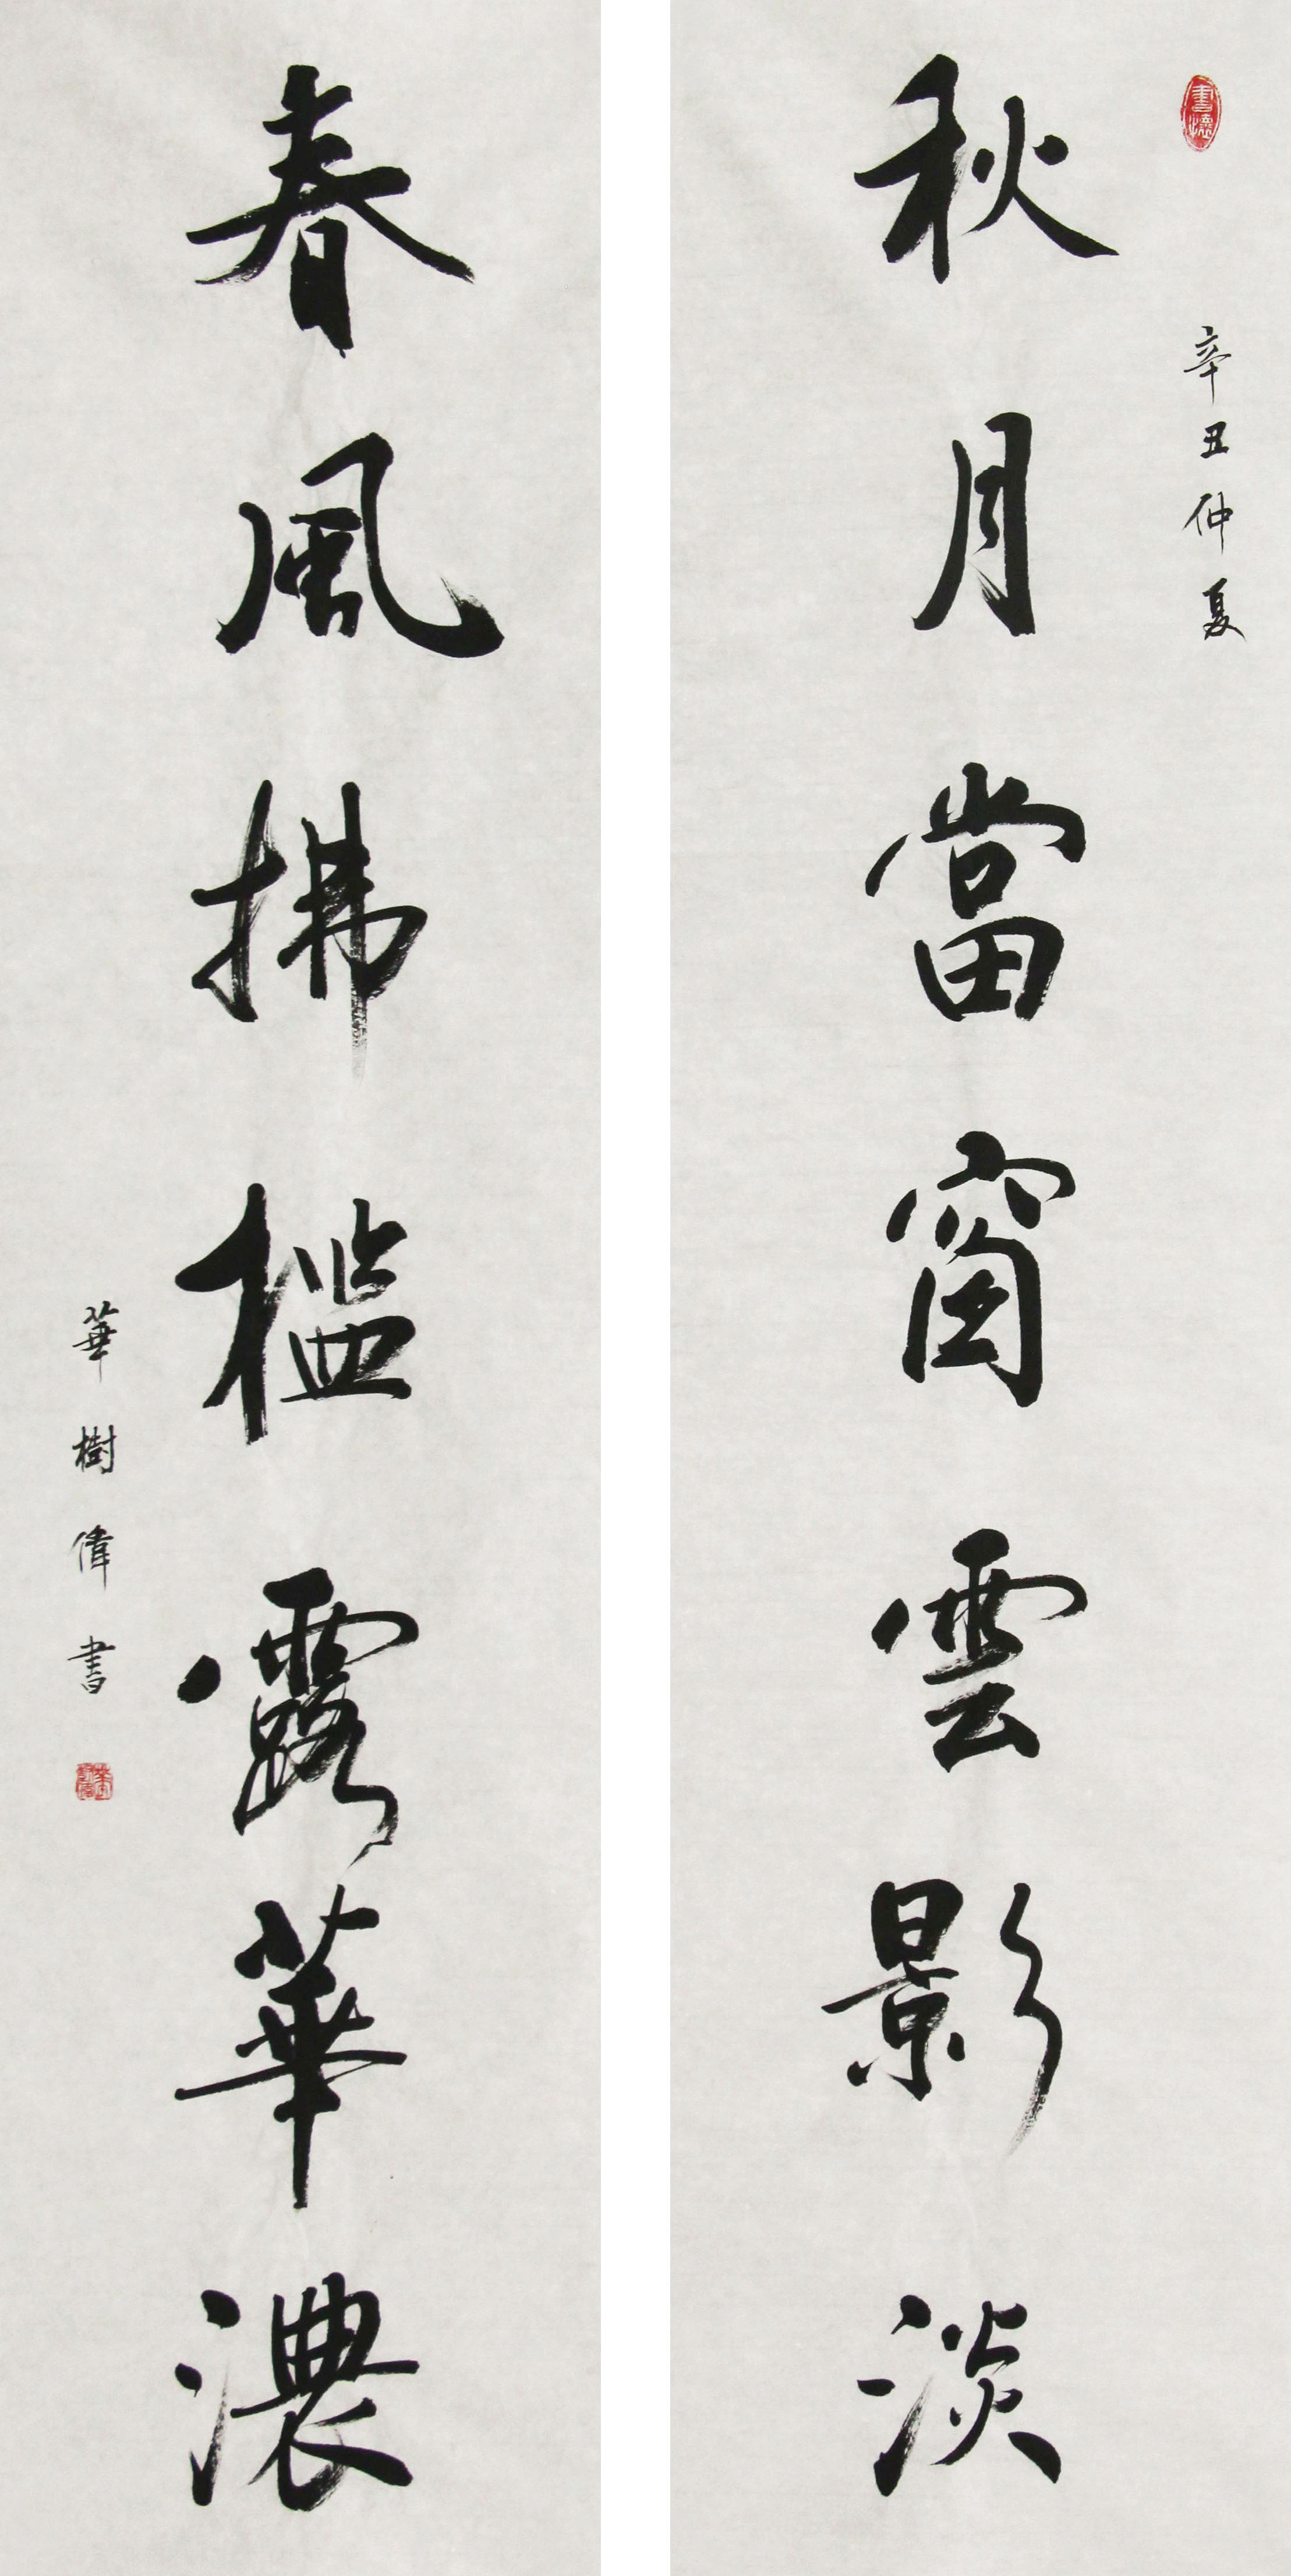 書懷
辛丑仲夏
秋月當窗雲影淡
春風拂檻露華濃
華樹偉書